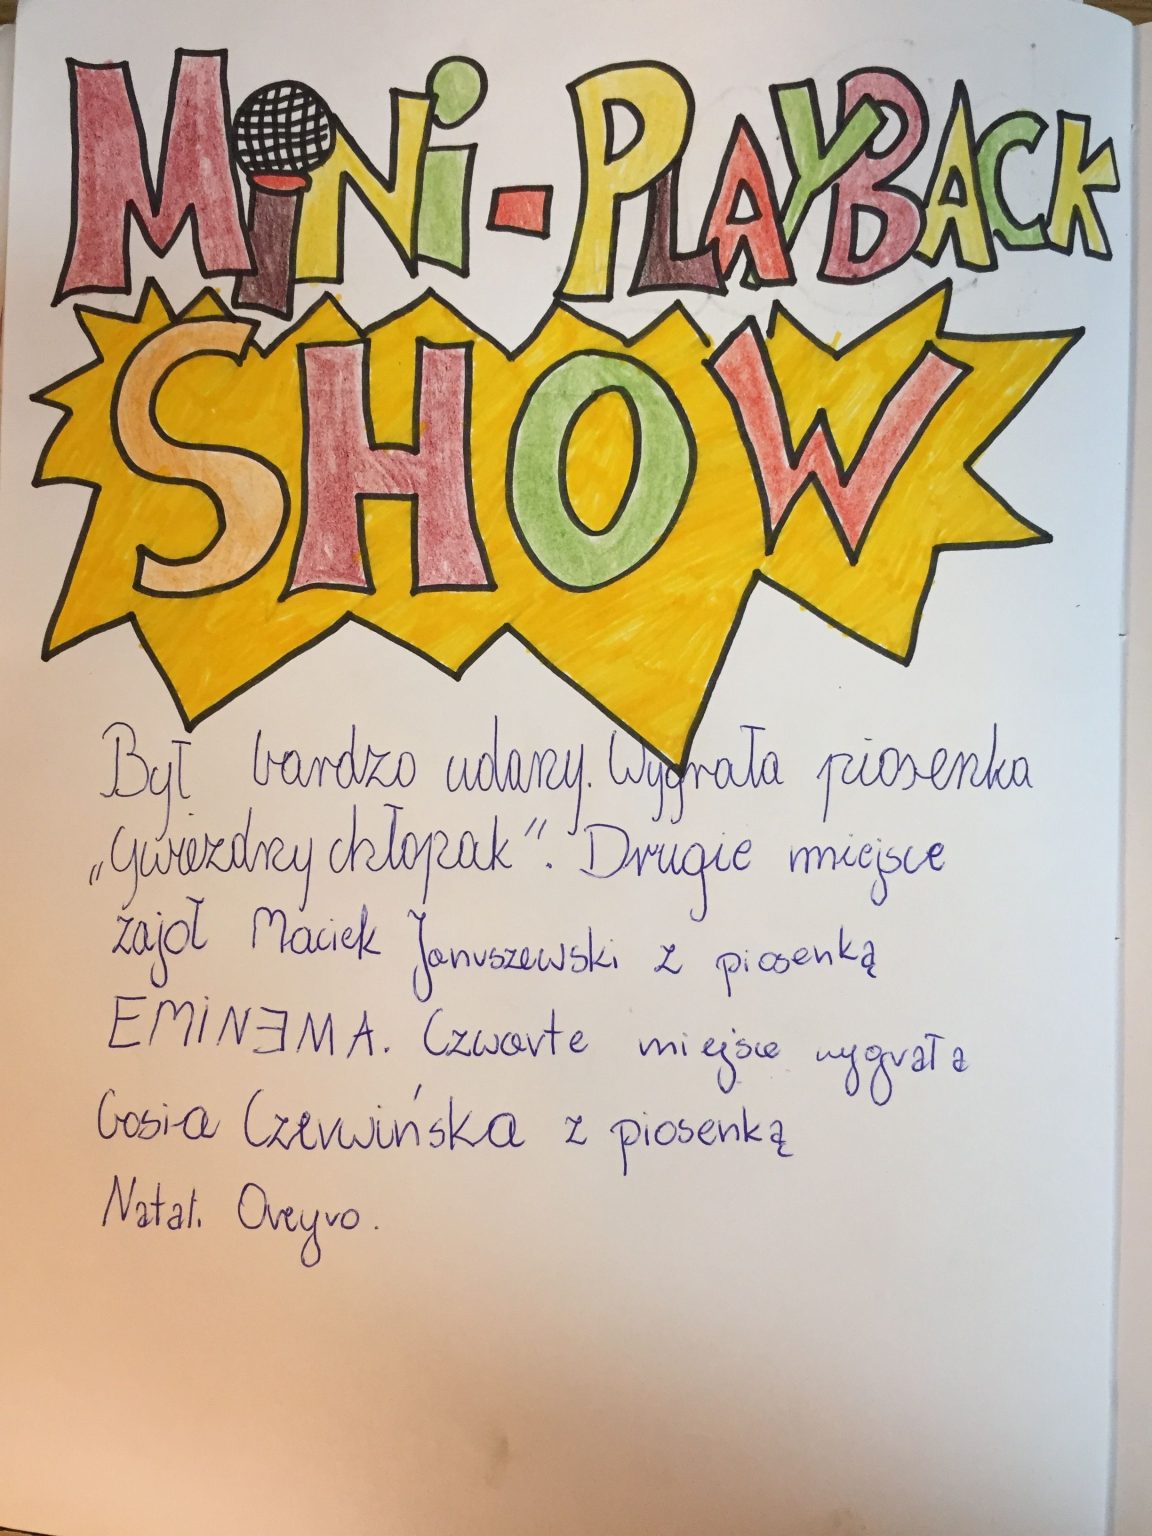 MiNi-PLAYBACK
SHOW
Był bardzo udany. Wygrała piosenka
„Gwiezdny chłopak”. Drugie miejsce
zajoł Maciek Januszewski z piosenką
EMINƎMA. Czwarte miejsce wygrała
Gosia Czerwińska z piosenką
Natal. Oreyro.